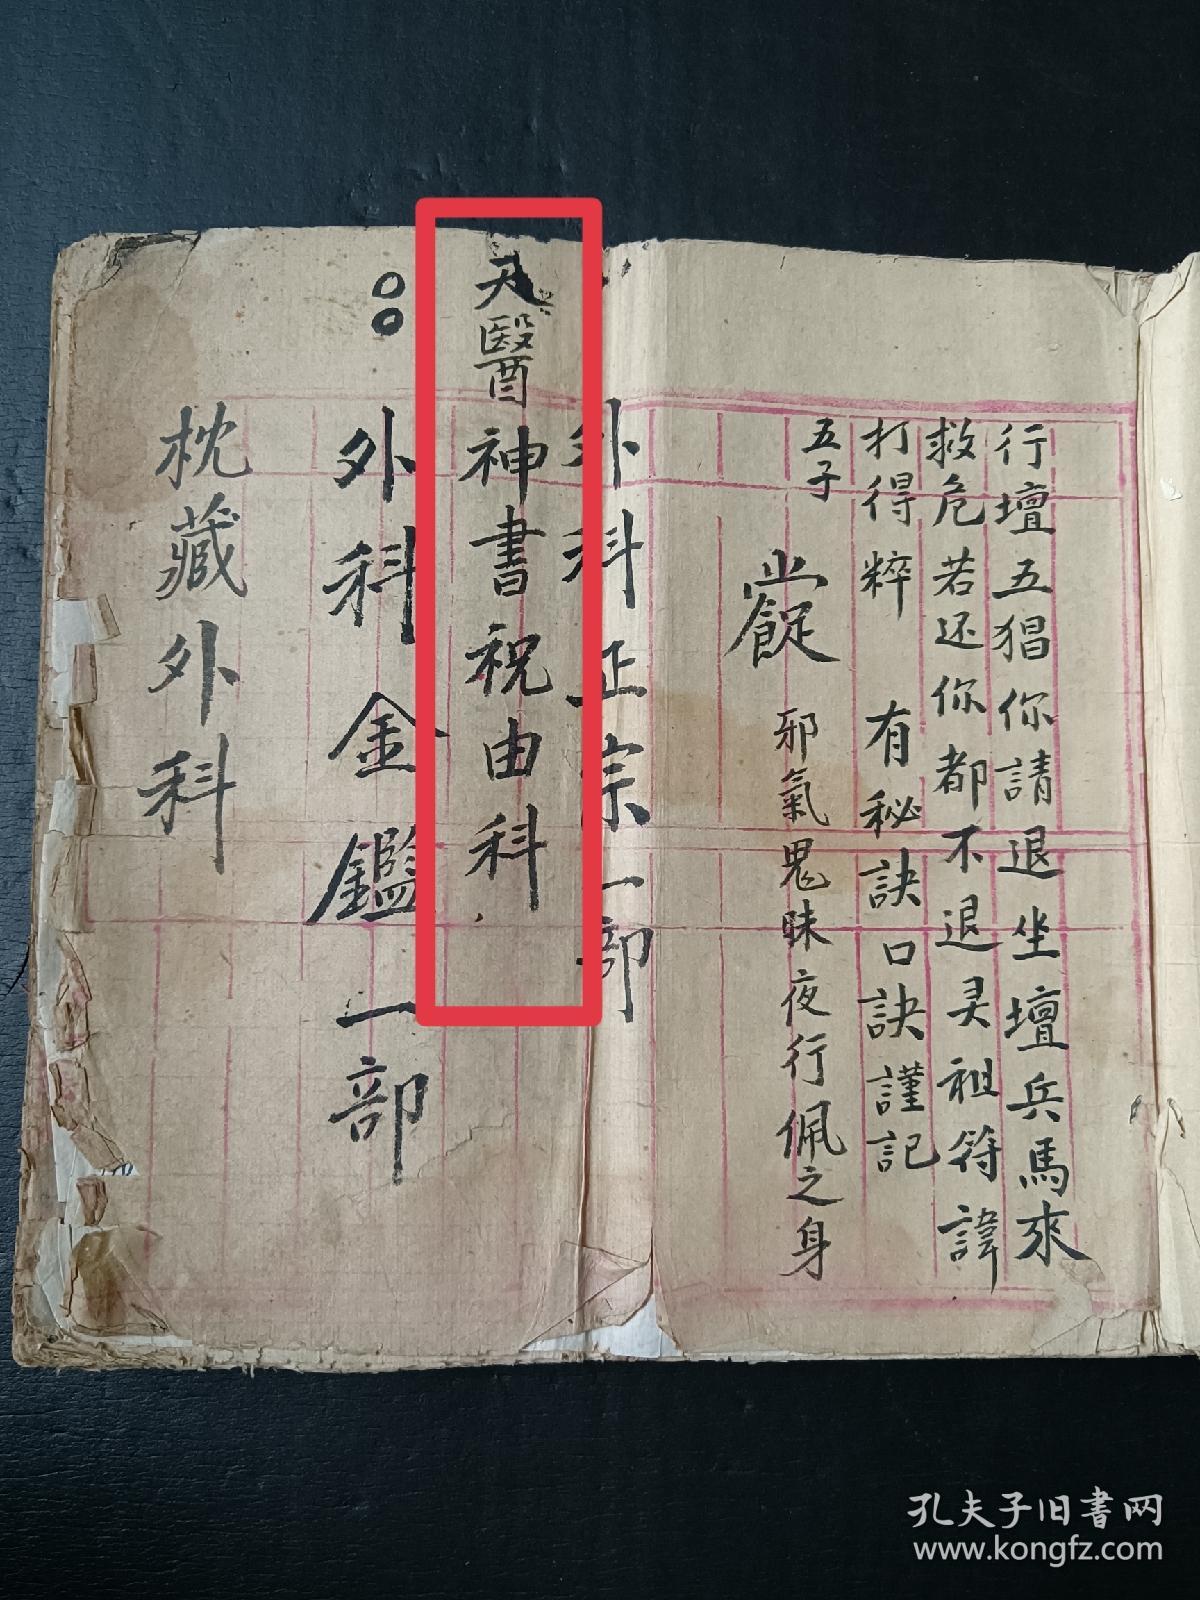 行壇五猖你請退坐壇兵馬來
救危若还你都不退灵祖符諱
打得粹 有秘訣口訣謹記
五子
邪氣鬼昧夜行佩之身
外科正宗一部
天醫神書祝由科
外科金鑑一部
枕藏外科
孔夫子旧書网
www.kongfz.com